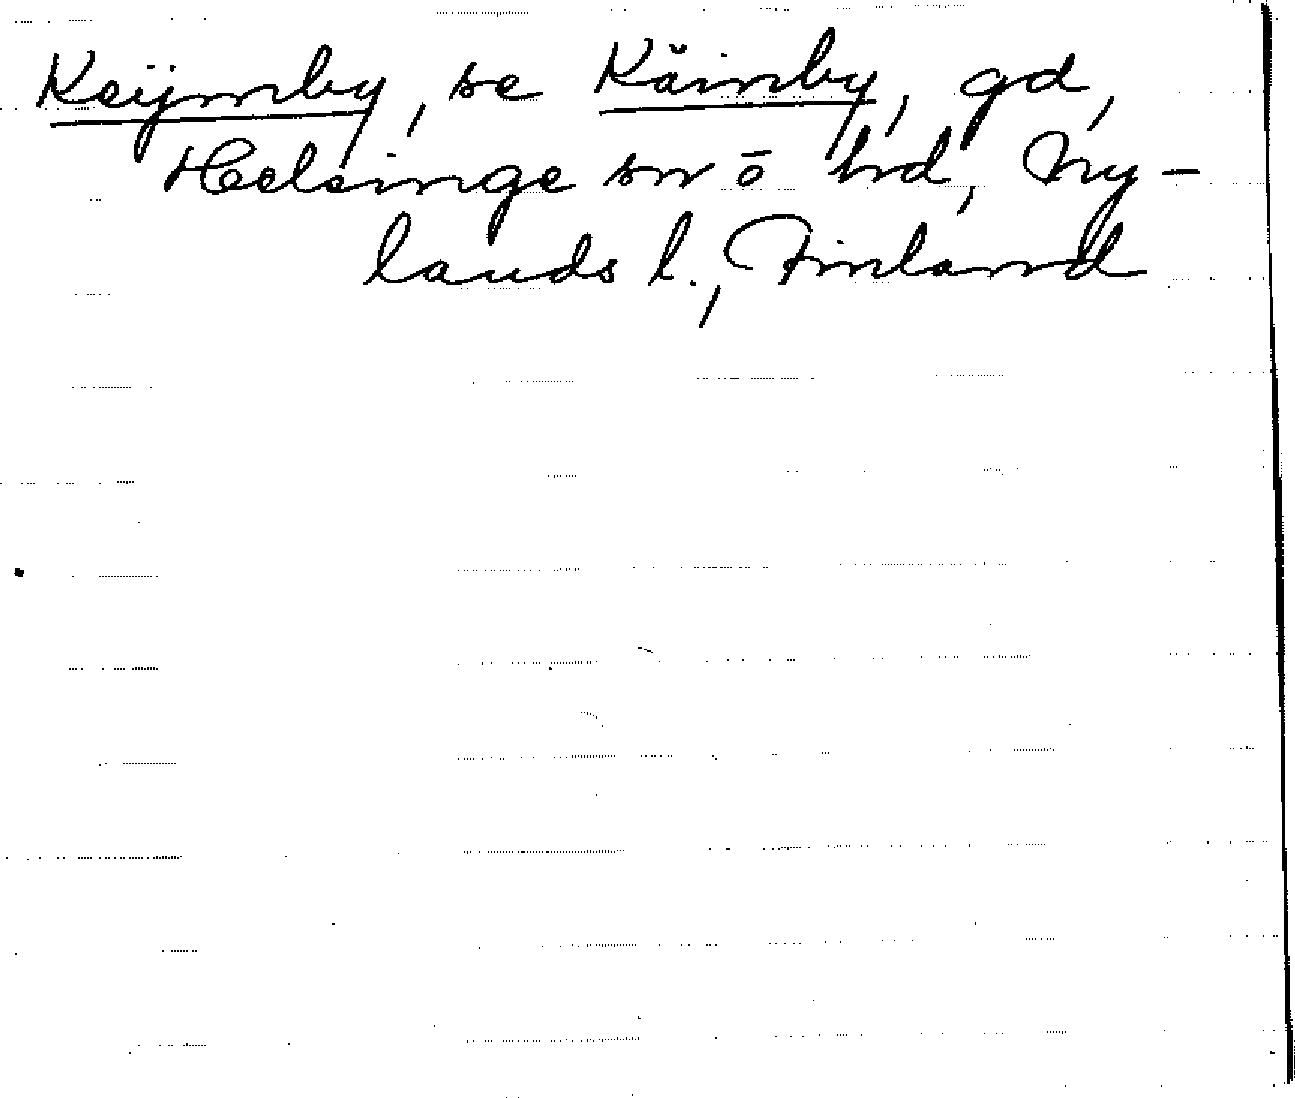 Keijmby, se Kăimby, gd,
Helsinge sn o hd, Ny-
lands l., Finland